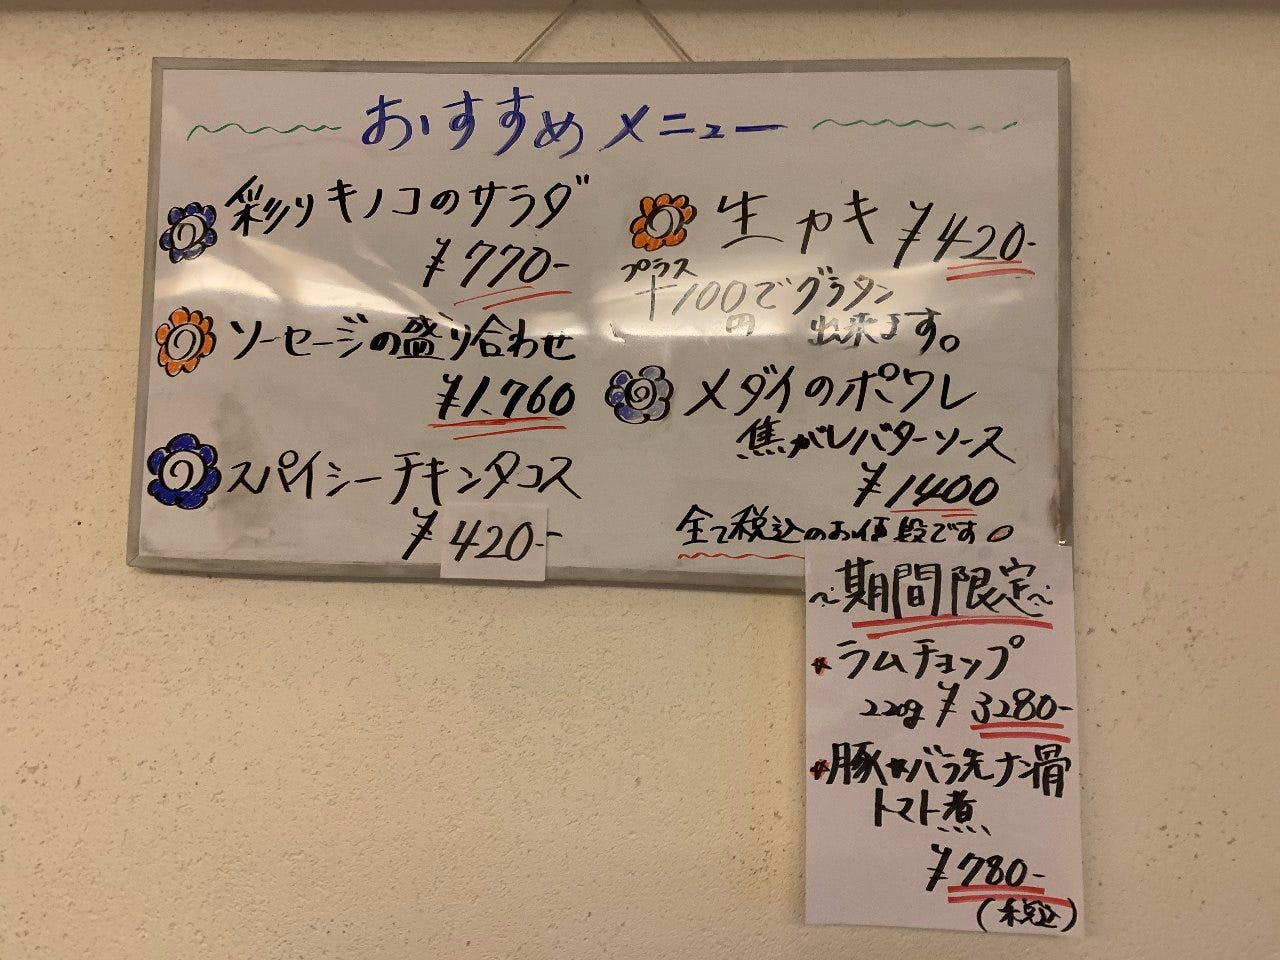 おすすめメニュー
彩りキノコのサラダ
¥770-
ソーセージの盛り合わせ
¥1,760
スパイシーチキンタコス
¥420-
生カキ ¥420-
プラス
+100円でグラタン
出来ます。
メダイのポワレ
焦がしバターソース
¥1400
全て税込のお値段です。
~期間限定~
ラムチョップ
220g ¥3280-
豚カバラ先ナン骨
トマト煮
¥780-
(税込)